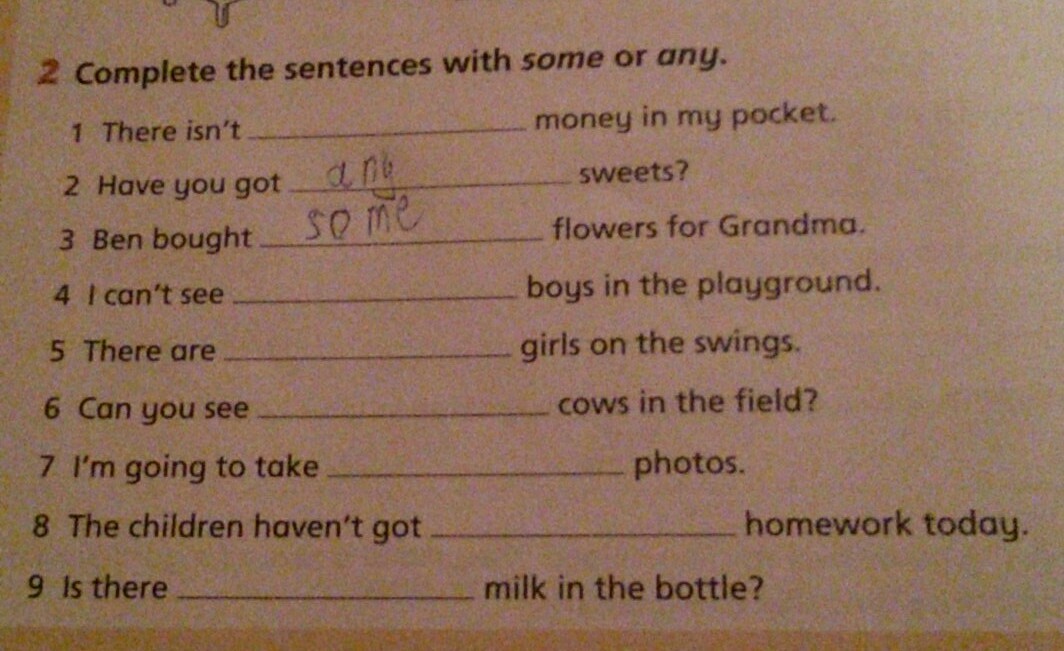 2 Complete the sentences with some or any.
1 There isn't ____________ money in my pocket.
2 Have you got any sweets?
3 Ben bought some flowers for Grandma.
4 I can't see ____________ boys in the playground.
5 There are ____________ girls on the swings.
6 Can you see ____________ cows in the field?
7 I'm going to take ____________ photos.
8 The children haven't got ____________ homework today.
9 Is there ____________ milk in the bottle?